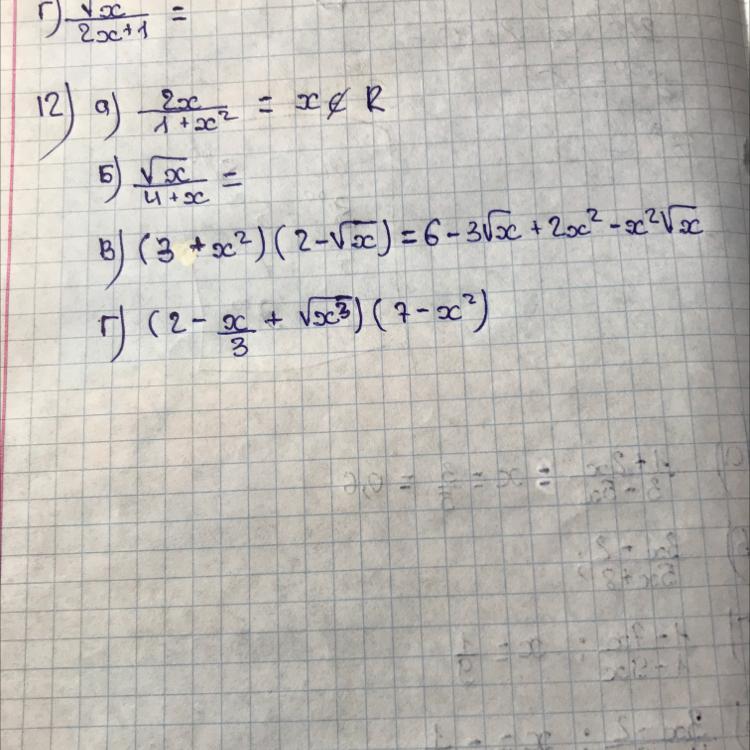 г) √x / 2x+1 =
12) а) 2x / 1+x² = x ∉ R
Б) √x / 4+x =
в) (3 + x²)(2-√x) = 6 - 3√x + 2x² - x²√x
г) (2 - x/3 + √x³)(7 - x²)